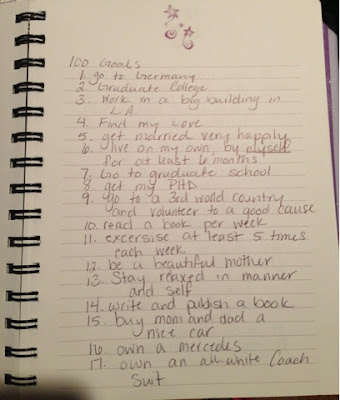 100 Goals
1. go to Germany
2 Graduate College
3. Work in a big building in
L.A
4. Find my Love
5. get married very happily
6. live on my own, by myself
for at least 6 months
7. Go to graduate school
8. get my PHD
9. go to a 3rd world country
and volunteer to a good cause
10. read a book per week
11. excersise at least 5 times
each week
12. be a beautiful mother
13. Stay relaxed in manner
and self
14. write and publish a book
15. buy mom and dad a
nice car
16. own a mercedes
17. own an all-white Coach
Suit